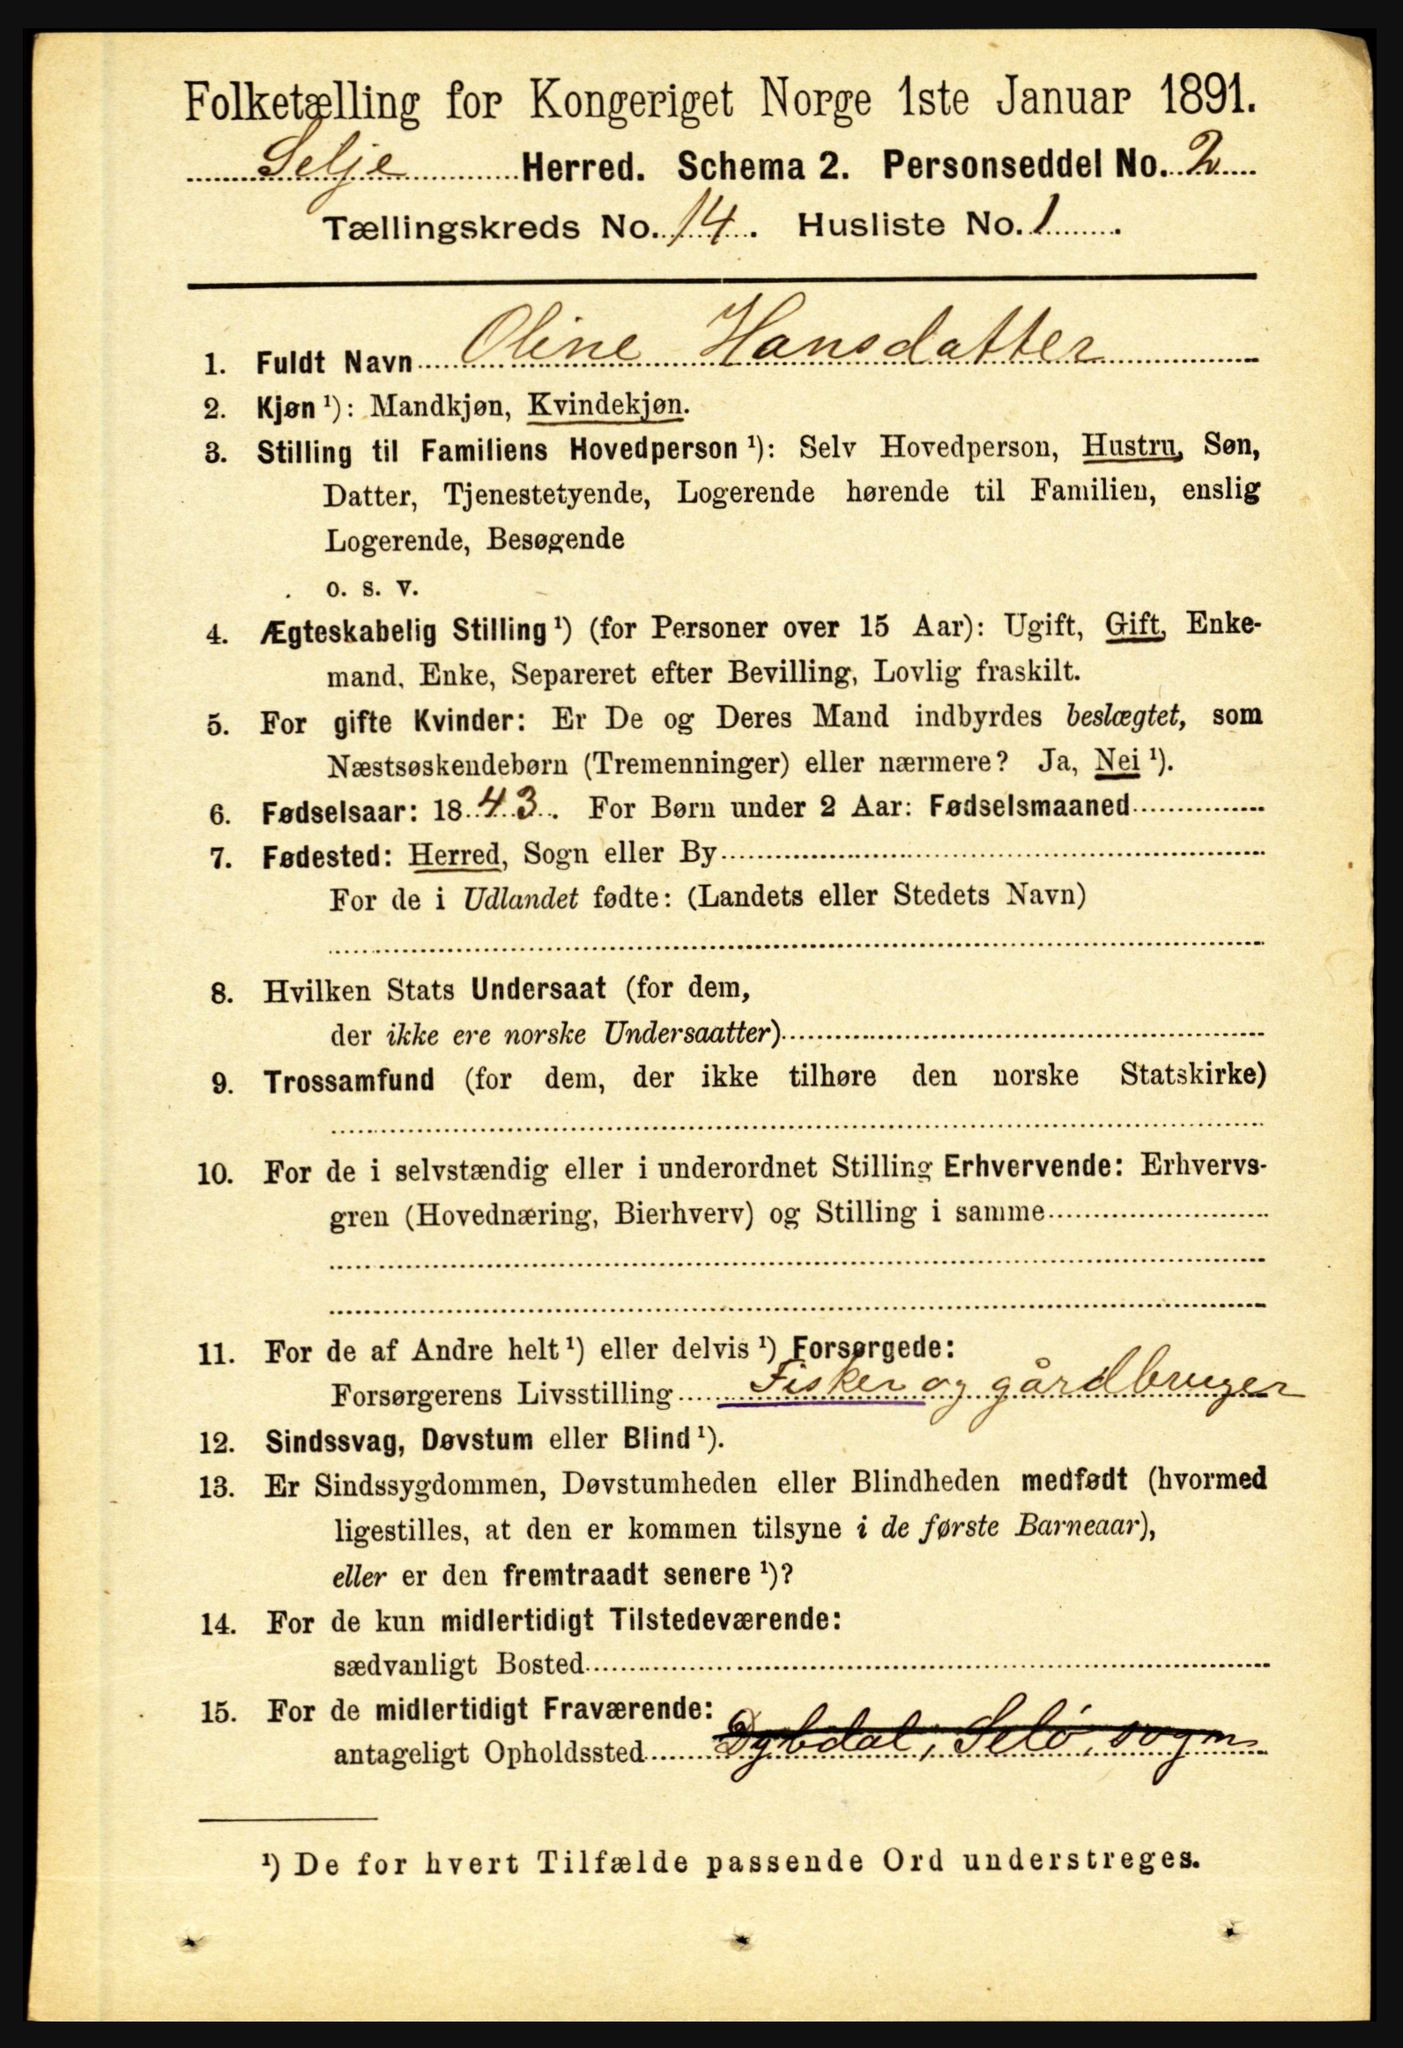 Folketælling for Kongeriget Norge 1ste Januar 1891.
Selje Herred. Schema 2. Personseddel No. 2
Tællingskreds No. 14. Husliste No. 1.
1. Fuldt Navn Oline Hansdatter
2. Kjøn ¹): Mandkjøn, Kvindekjøn.
3. Stilling til Familiens Hovedperson ¹): Selv Hovedperson, Hustru, Søn,
Datter, Tjenestetyende, Logerende hørende til Familien, enslig
Logerende, Besøgende
o. s. v.
4. Ægteskabelig Stilling ¹) (for Personer over 15 Aar): Ugift, Gift, Enke-
mand, Enke, Separeret efter Bevilling, Lovlig fraskilt.
5. For gifte Kvinder: Er De og Deres Mand indbyrdes beslægtet, som
Næstsøskendebørn (Tremenninger) eller nærmere? Ja, Nei ¹).
6. Fødselsaar: 1843. For Børn under 2 Aar: Fødselsmaaned
7. Fødested: Herred, Sogn eller By
For de i Udlandet fødte: (Landets eller Stedets Navn)
8. Hvilken Stats Undersaat (for dem,
der ikke ere norske Undersaatter)
9. Trossamfund (for dem, der ikke tilhøre den norske Statskirke)
10. For de i selvstændig eller i underordnet Stilling Erhvervende: Erhvervs-
gren (Hovednæring, Bierhverv) og Stilling i samme
11. For de af Andre helt ¹) eller delvis ¹) Forsørgede:
Forsørgerens Livsstilling Fisker og gårdbruger
12. Sindssvag, Døvstum eller Blind ¹).
13. Er Sindssygdommen, Døvstumheden eller Blindheden medfødt (hvormed
ligestilles, at den er kommen tilsyne i de første Barneaar),
eller er den fremtraadt senere ¹)?
14. For de kun midlertidigt Tilstedeværende:
sædvanligt Bosted
15. For de midlertidigt Fraværende:
antageligt Opholdssted Dybdal, Selö, sogn
¹) De for hvert Tilfælde passende Ord understreges.